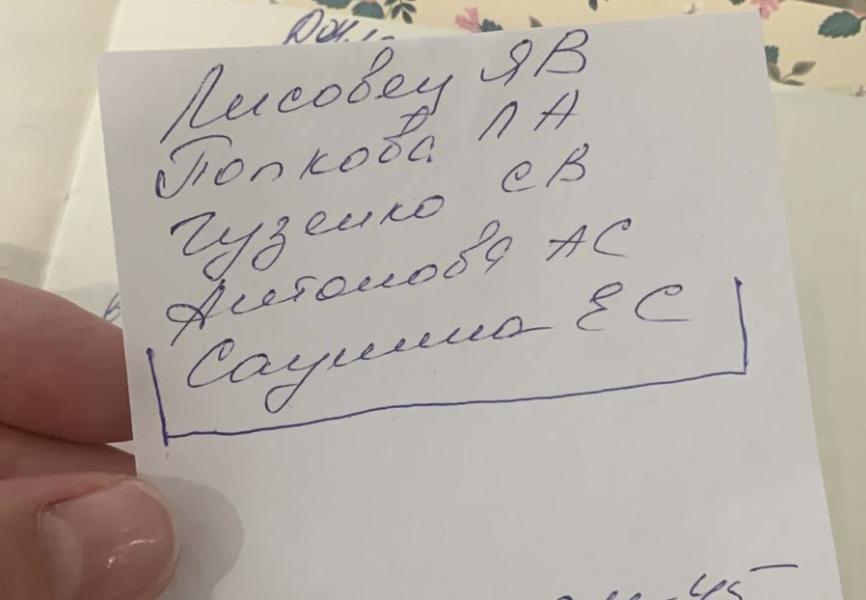 Лисовец ЯВ
Попкова ЛА
Гузенко СВ
Антонова АС
Саунина ЕС